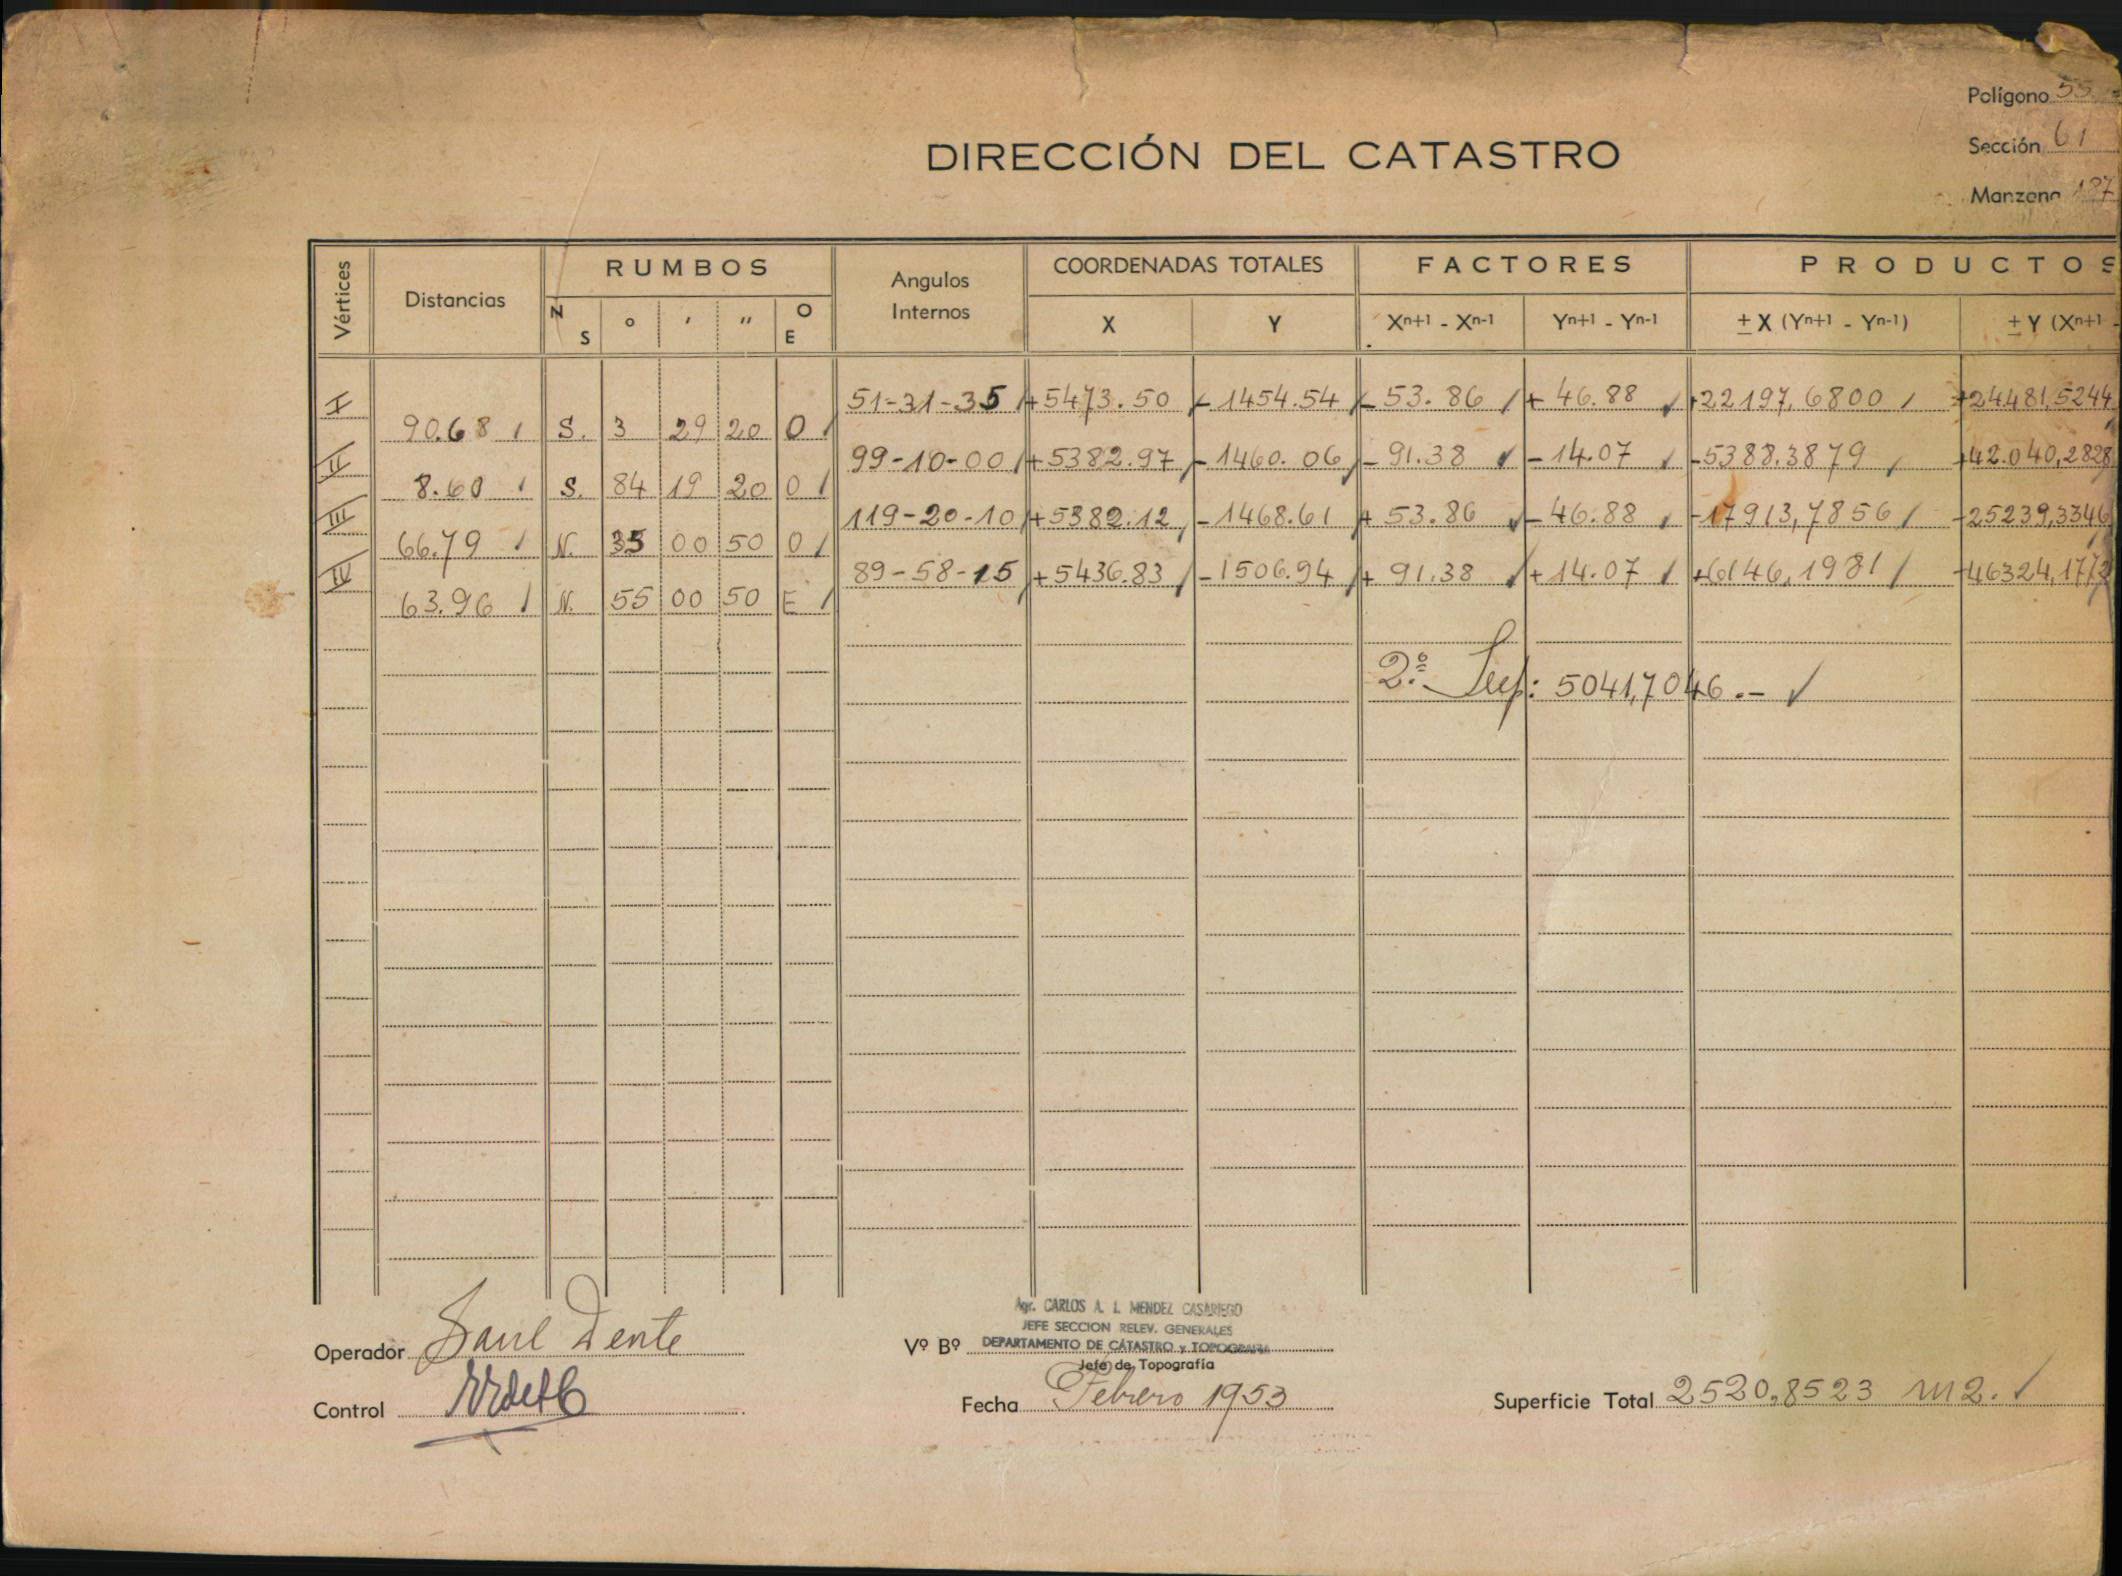 Polígono 55
Sección 61
Manzana 187
DIRECCIÓN DEL CATASTRO
Vértices Distancias RUMBOS Angulos Internos COORDENADAS TOTALES FACTORES PRODUCTOS
N S o ' " O E X Y Xn+1 - Xn-1 Yn+1 - Yn-1 ± X (Yn+1 - Yn-1) ± Y (Xn+1 -
I 51-31-35 +5473.50 - 1454.54 - 53.86 + 46.88 +22197,6800 +24481,5244
90.68 S. 3 29 20 O
II 99-10-00 +5382.97 - 1460.06 - 91.38 - 14.07 -5388.3879 +42.040,2828
8.60 S. 84 19 20 O
III 119-20-10 +5382.12 - 1468.61 + 53.86 - 46.88 -17913,7856 -25239,3346
66.79 N. 35 00 50 O
IV 89-58-15 +5436.83 - 1506.94 + 91.38 + 14.07 +6146,1981 -46324,1772
63.96 N. 55 00 50 E
2º Sup: 5041,7046.-
Operador Saul Dente
Control
Vº Bº
Agr. CARLOS A. L. MENDEZ CASARIEGO
JEFE SECCION RELEV. GENERALES
DEPARTAMENTO DE CATASTRO y TOPOGRAFIA
Jefe de Topografía
Fecha Febrero 1953
Superficie Total 2520,8523 m2.